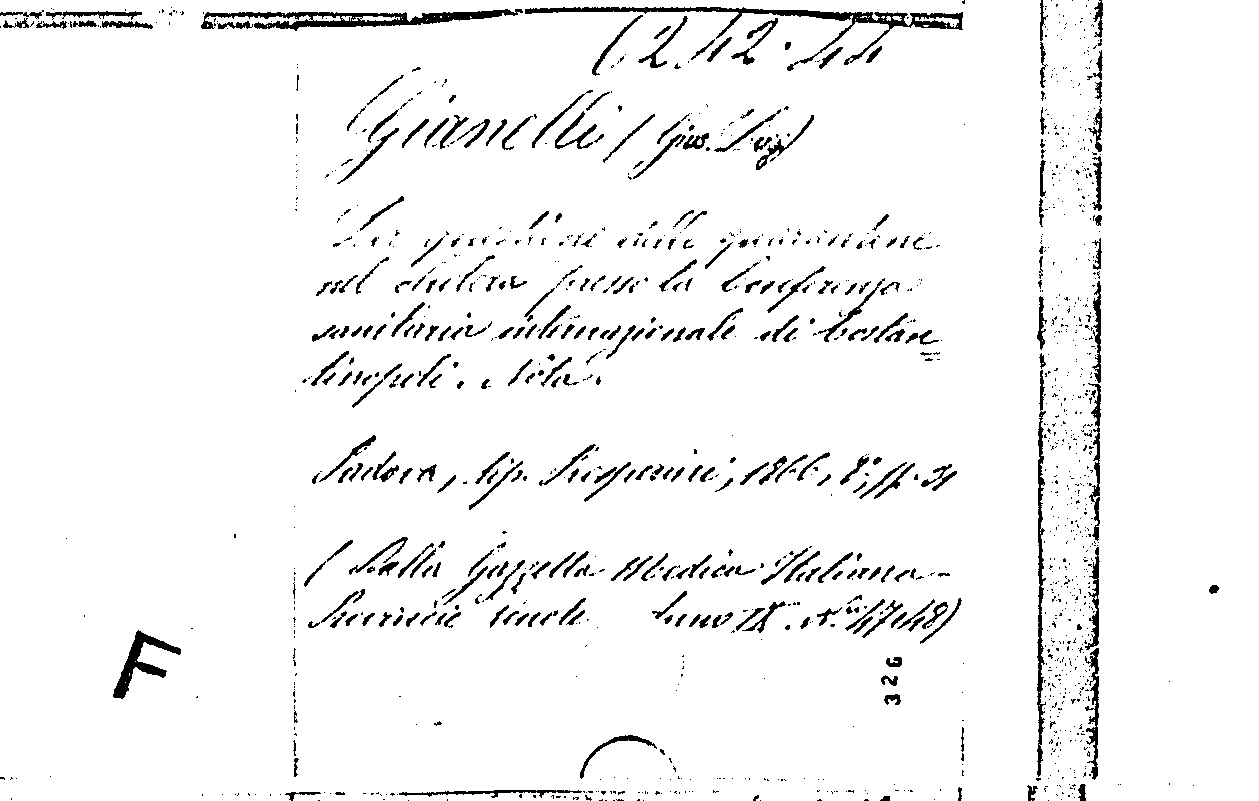 C 242.44
Gianelli (Gius. Luigi)
La questione delle quarantene
nel cholera presso la Conferenza
sanitaria internazionale di Costan=
tinopoli. Nota.
Padova, tip. Prosperini, 1866, 8°, pp. 31
(Dalla Gazzetta Medica Italiana-
Provincie Venete Anno IX. N.i 47 e 48)
326
F